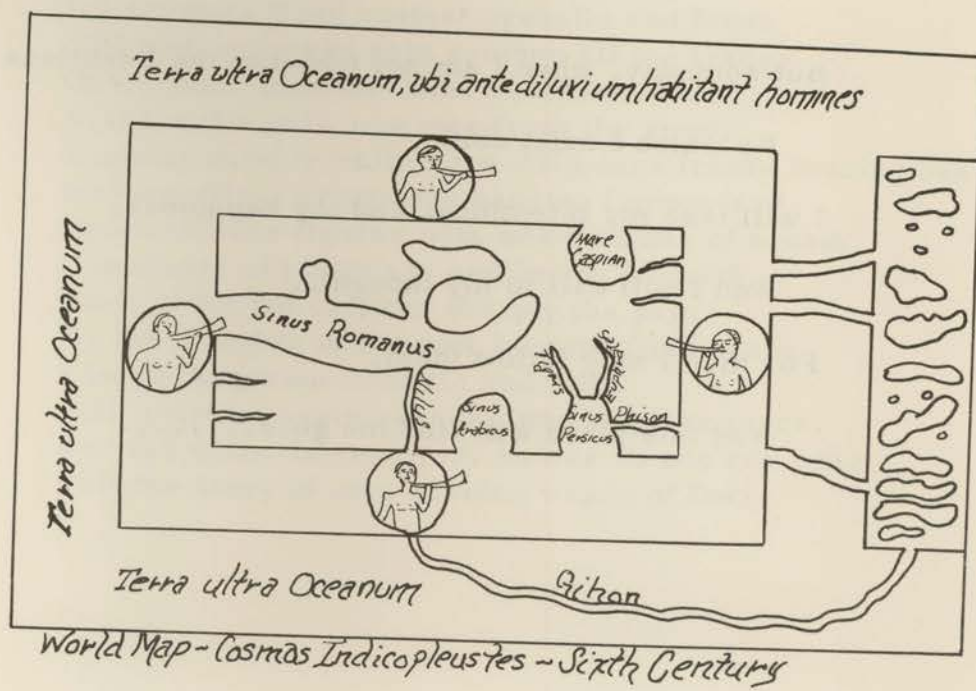 Terra ultra Oceanum, ubi ante diluvium habitant homines
Terra ultra Oceanum
Mare
Caspian
Sinus Romanus
Nilus
Sinus
Arabicus
Tigris
Euphrates
Sinus
Persicus
Phison
Terra ultra Oceanum
Gihon
World Map ~ Cosmas Indicopleustes ~ Sixth Century